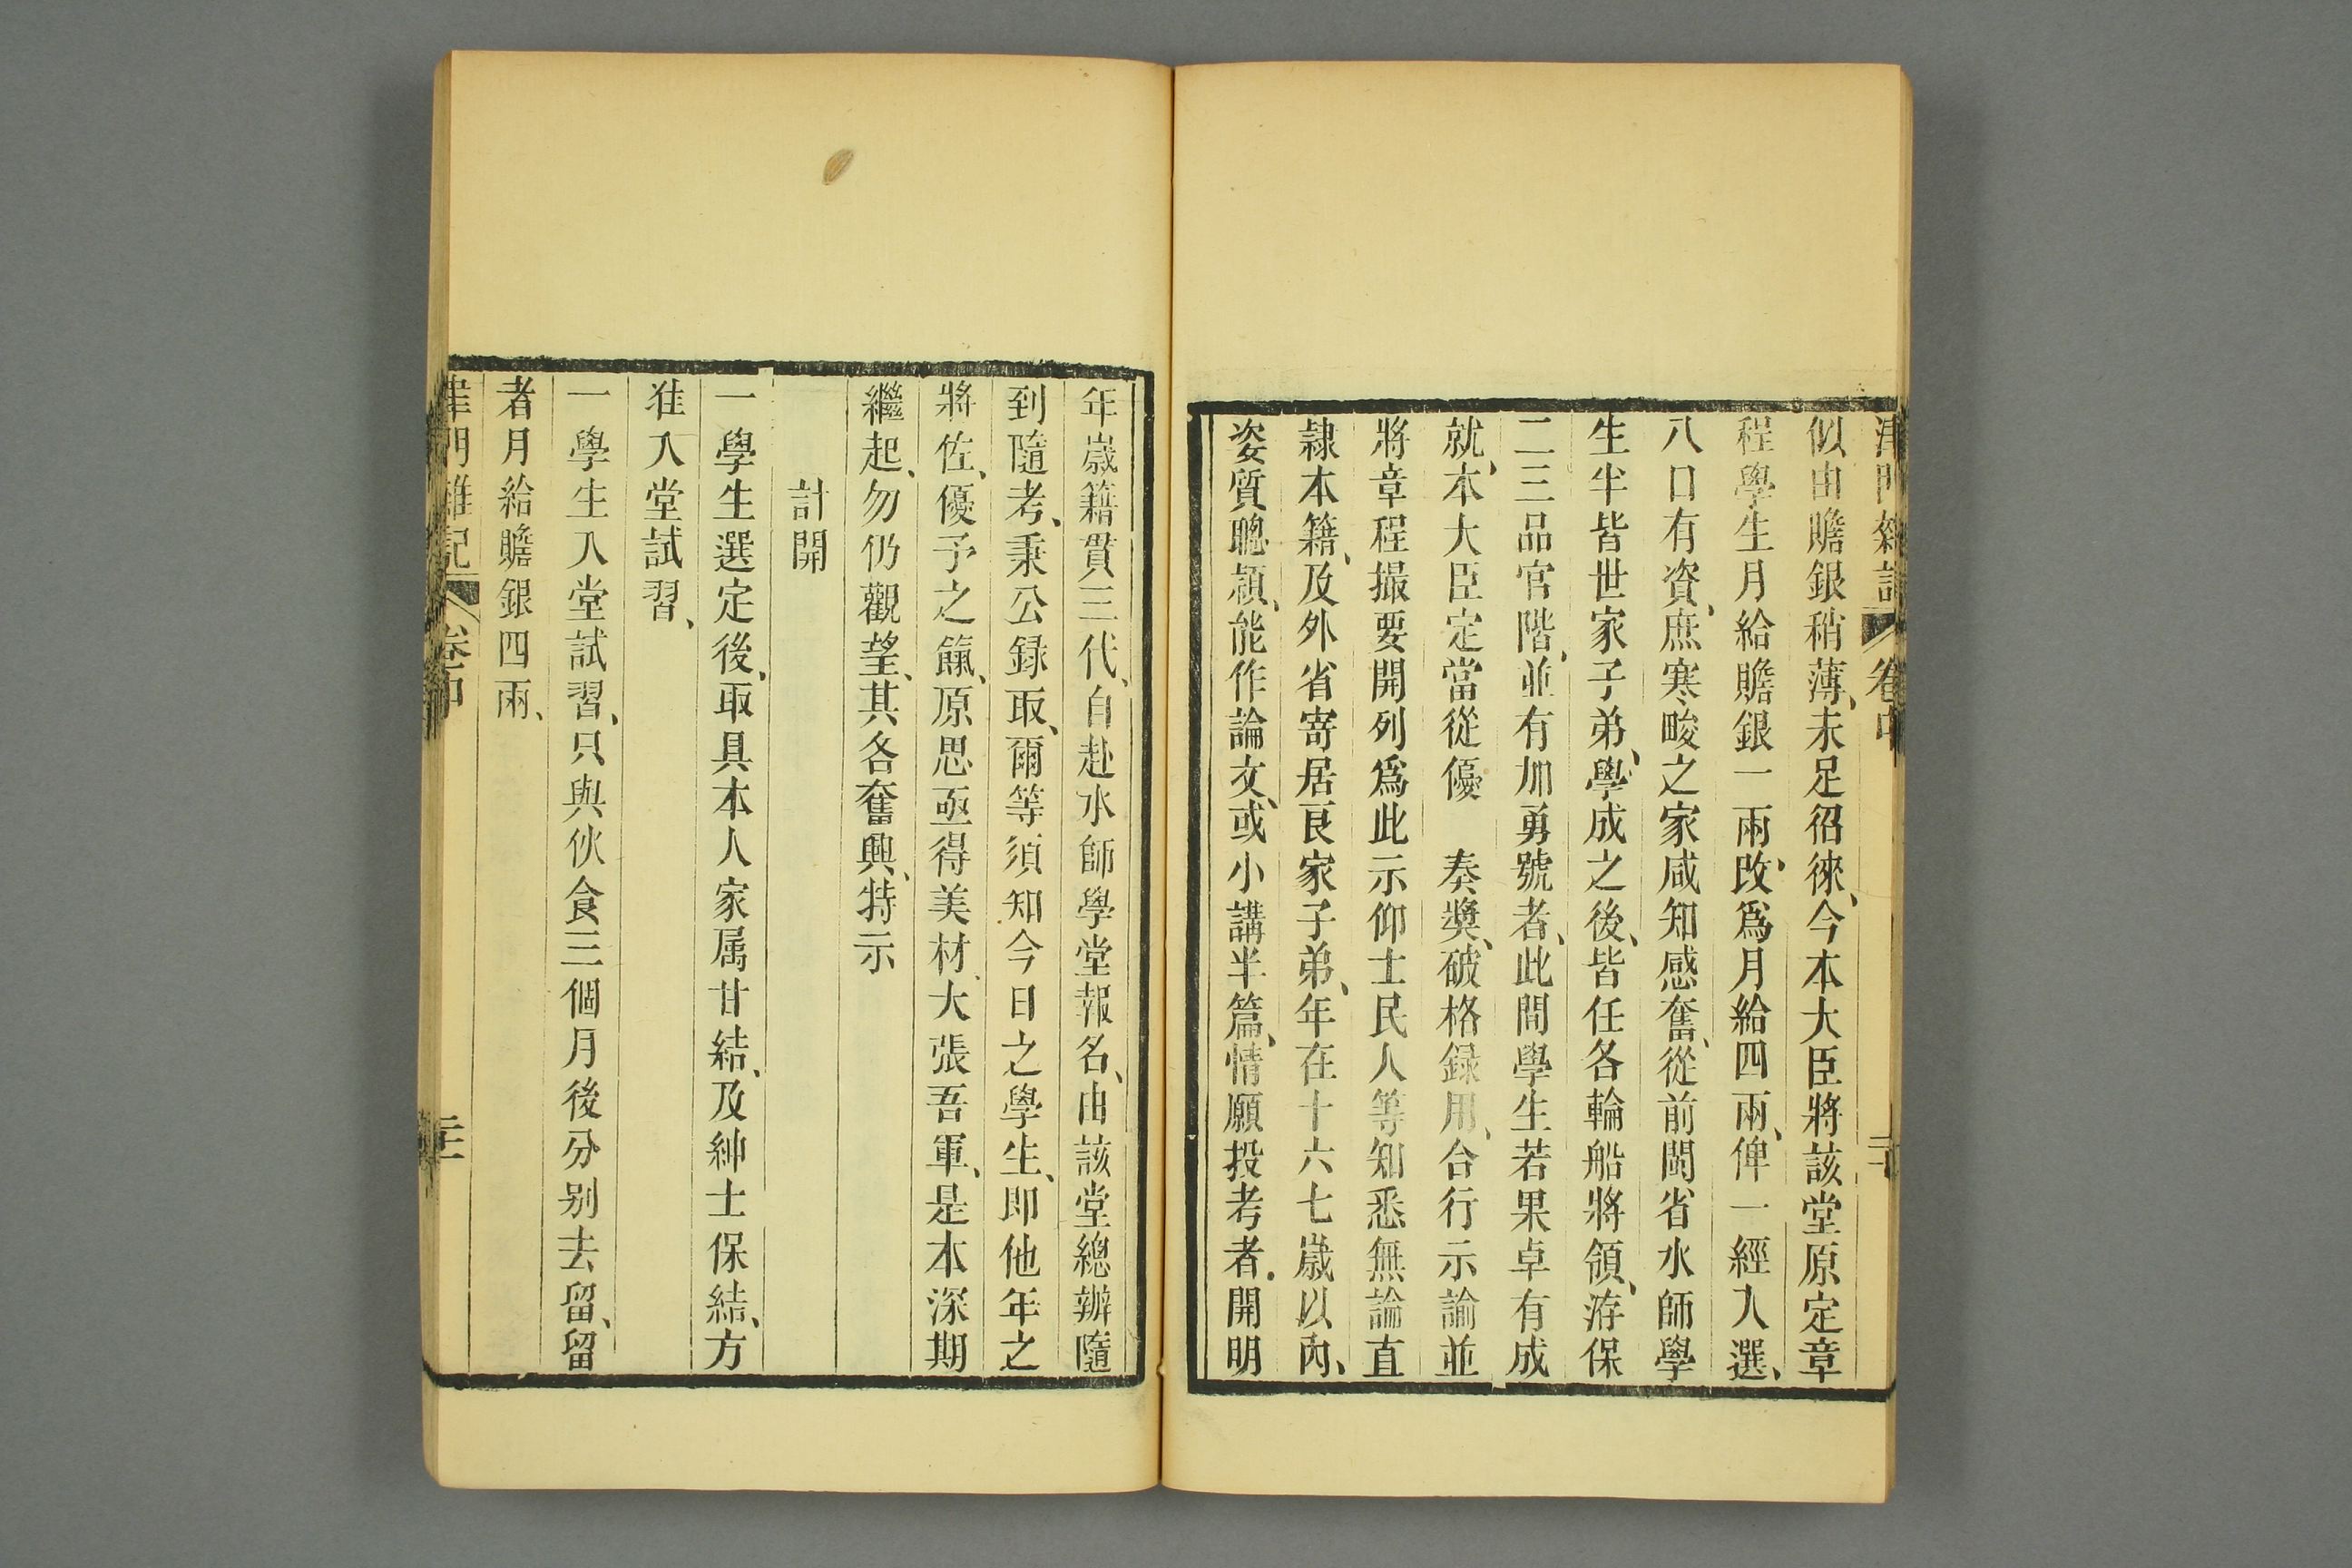 津門雜記 卷中
似由贍銀稍薄、未足徠徠、今本大臣將該堂原定章
程學生月給贍銀一兩、改爲月給四兩、俾一經入選、
八口有資、庶寒畯之家咸知感奮、從前閩省水師學
生半皆世家子弟、學成之後、皆任各輪船將領、洊保
二三品官階、並有加勇號者、此間學生若果卓有成
就、本大臣定當從優　奏獎、破格録用、合行示諭並
將章程撮要開列爲此示仰士民人等知悉無論直
隸本籍、及外省寄居良家子弟、年在十六七歲以內、
姿質聰頴、能作論文、或小講半篇、情願投考者、開明
年歲籍貫三代、自赴水師學堂報名、由該堂總辦隨
到隨考、秉公録取、爾等須知今日之學生、即他年之
將佐、優予之餼、原思亟得美材、大張吾軍、是本深期
繼起、勿仍觀望、其各奮興、特示
計開
一學生選定後、取具本人家属甘結、及紳士保結、方
准入堂試習、
一學生入堂試習、只與伙食三個月後分别去留、留
者月給贍銀四兩、
津門雜記 卷中